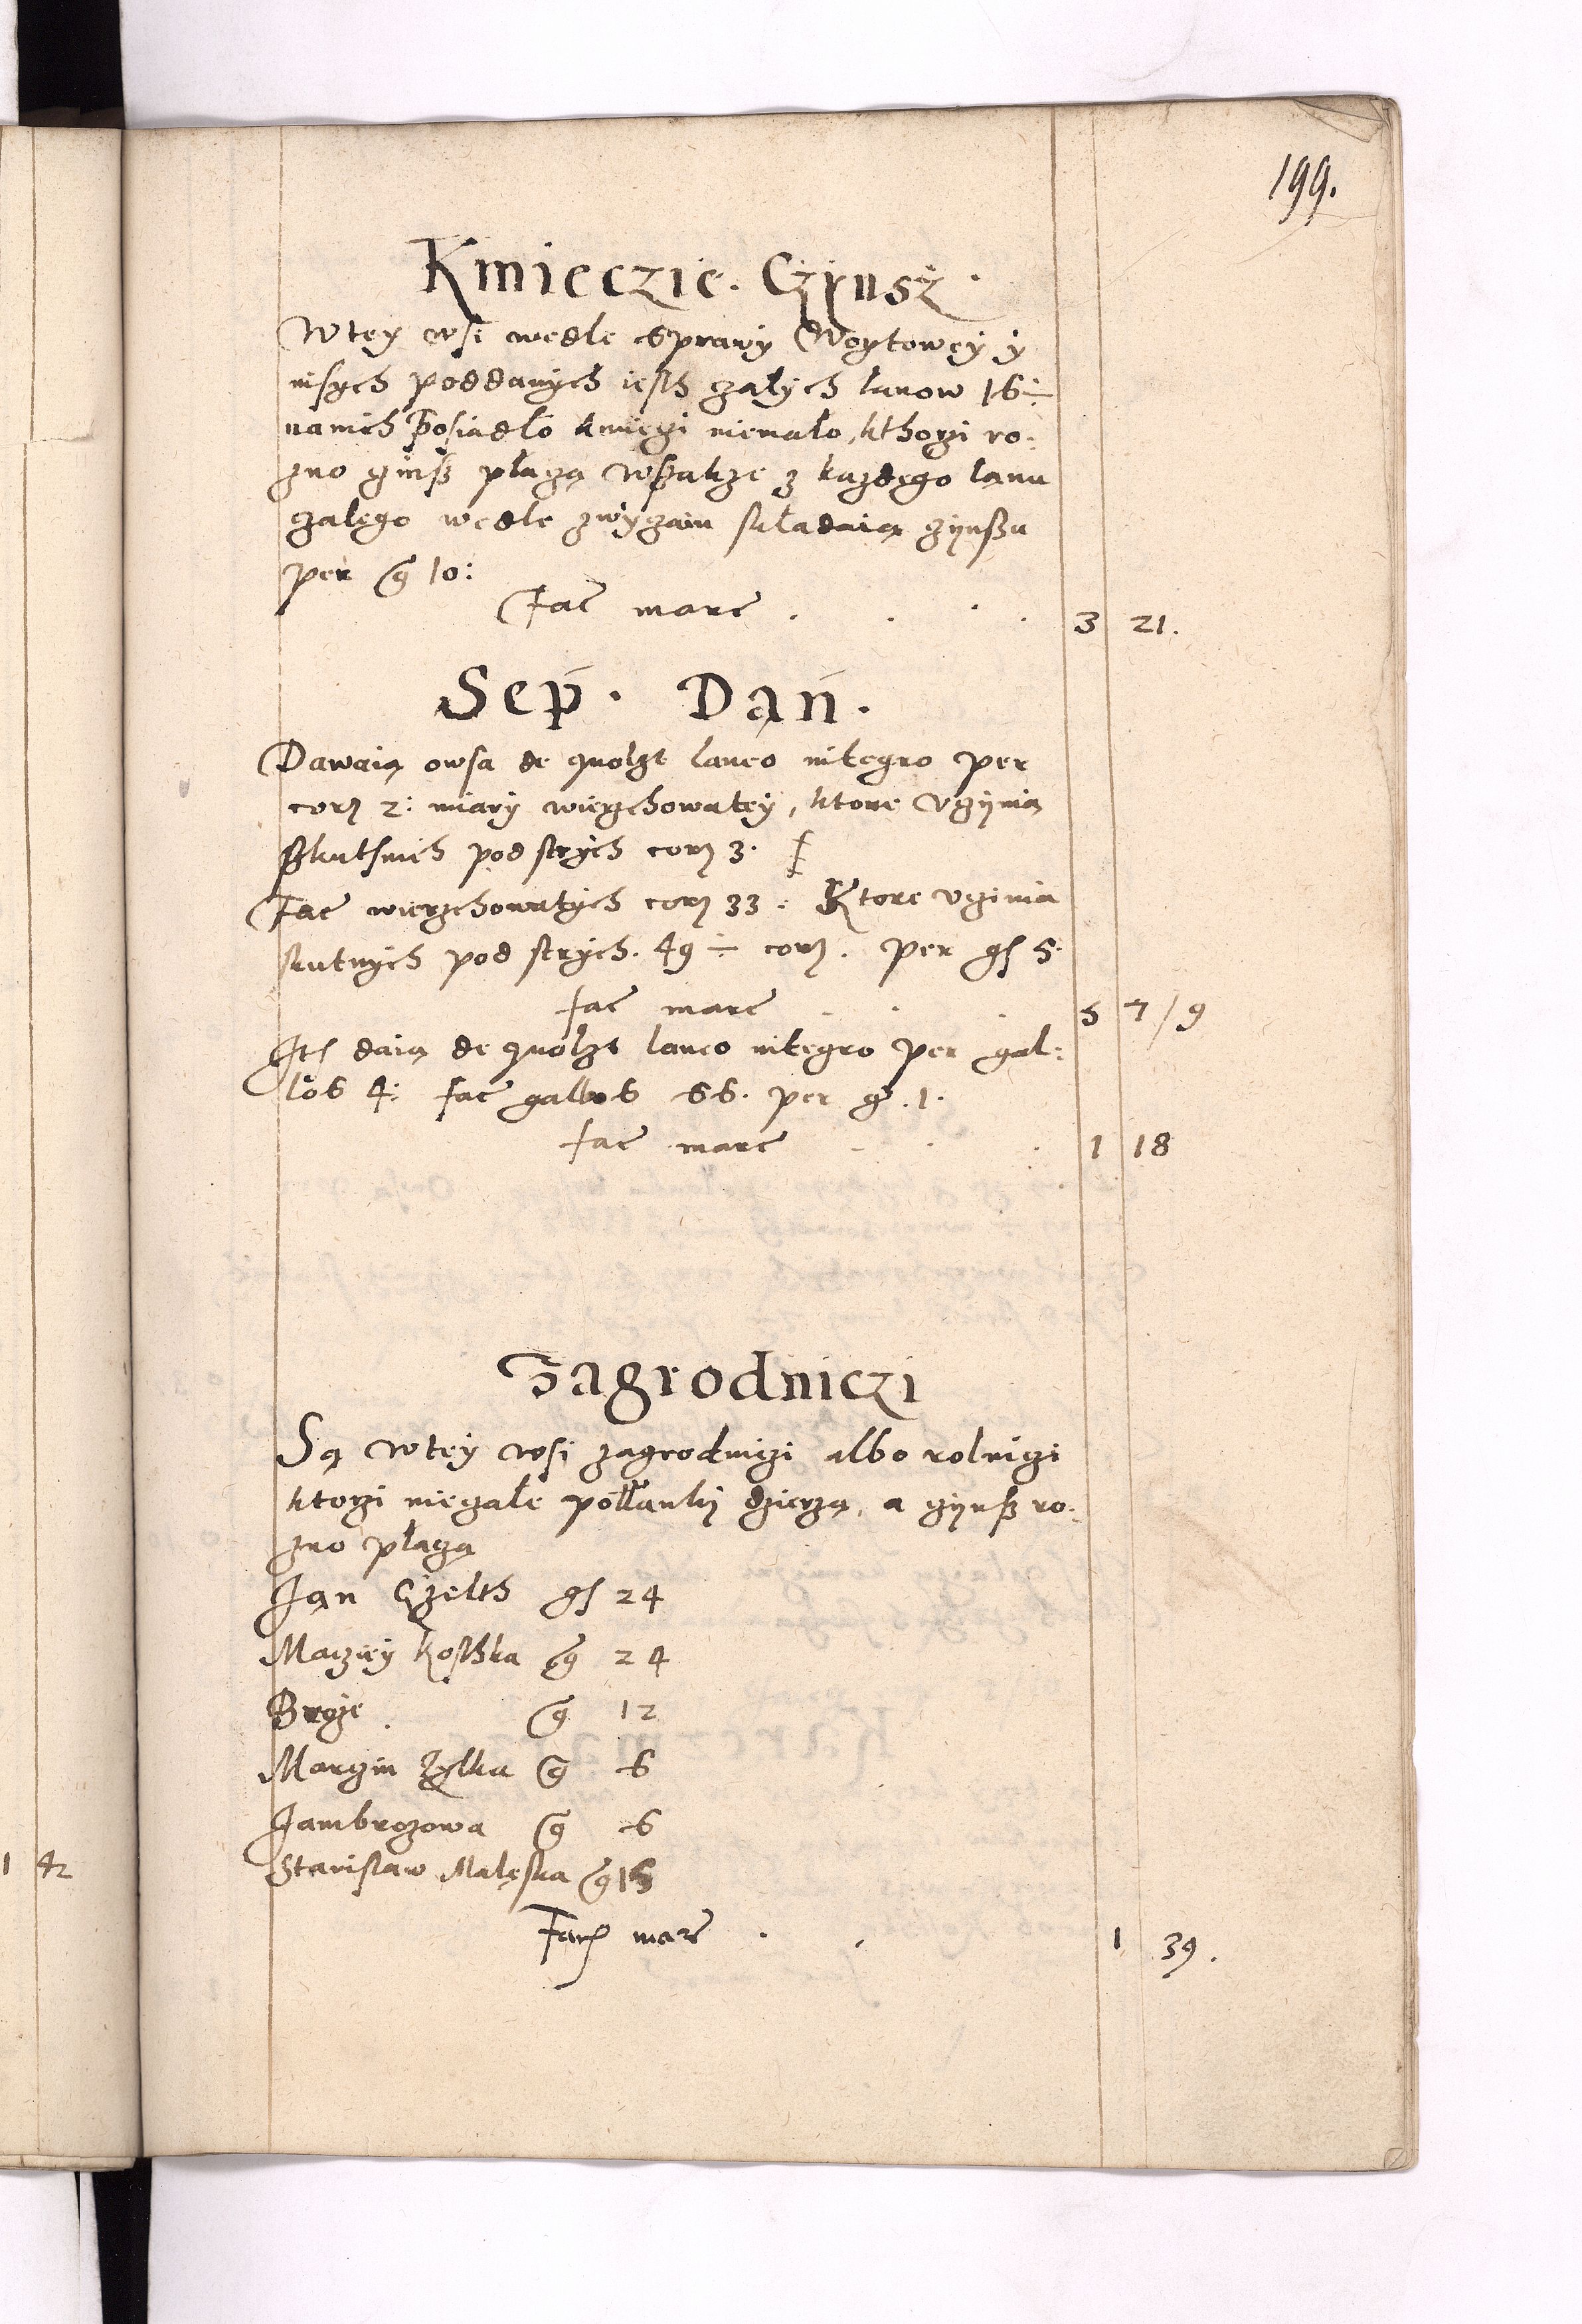 199.
Kmieczie. Czynsz.
W tey wsi wedle sprawy Woytowey y
inszych poddanych iesth czałych łanow 16 ÷
na nich posiadło kmieczi niemało, kthorzi ro:
czno czinsz płaczą wszakze z kazdego łanu
czałego wedle zwyczaiu składaią czynszu
per g 10:
fac marc . . . 3 21.
Sep. Dań.
Dawaią owsa de quolzt laneo integro per
cor 2: miary wierzchowatey, ktore vczynią
Skutsnich pod strych cor 3.
Fac wierzchowatych cor 33. Ktore vczinia
skutnych pod strych. 49 ÷ cor. per gs 5.
fac marc . . . 5 7/9
Its daią de quolzt laneo integro per gal:
los 4: fac gallos 66. per g. 1.
fac marc . . . 1 18
Zagrodniczi
Są w tey wsi zagrodniczi albo rolniczi
ktorzi nieczałe połłanki dzierzą, a czynsz ro:
czno płaczą
Jan Czelth gs 24
Macziey Kosthka g 24
g 12
Marczin Zylka g 6
Jambrozowa g 6
Stanisław Malęska g 15
Fac marc . . 1 39.
1 42